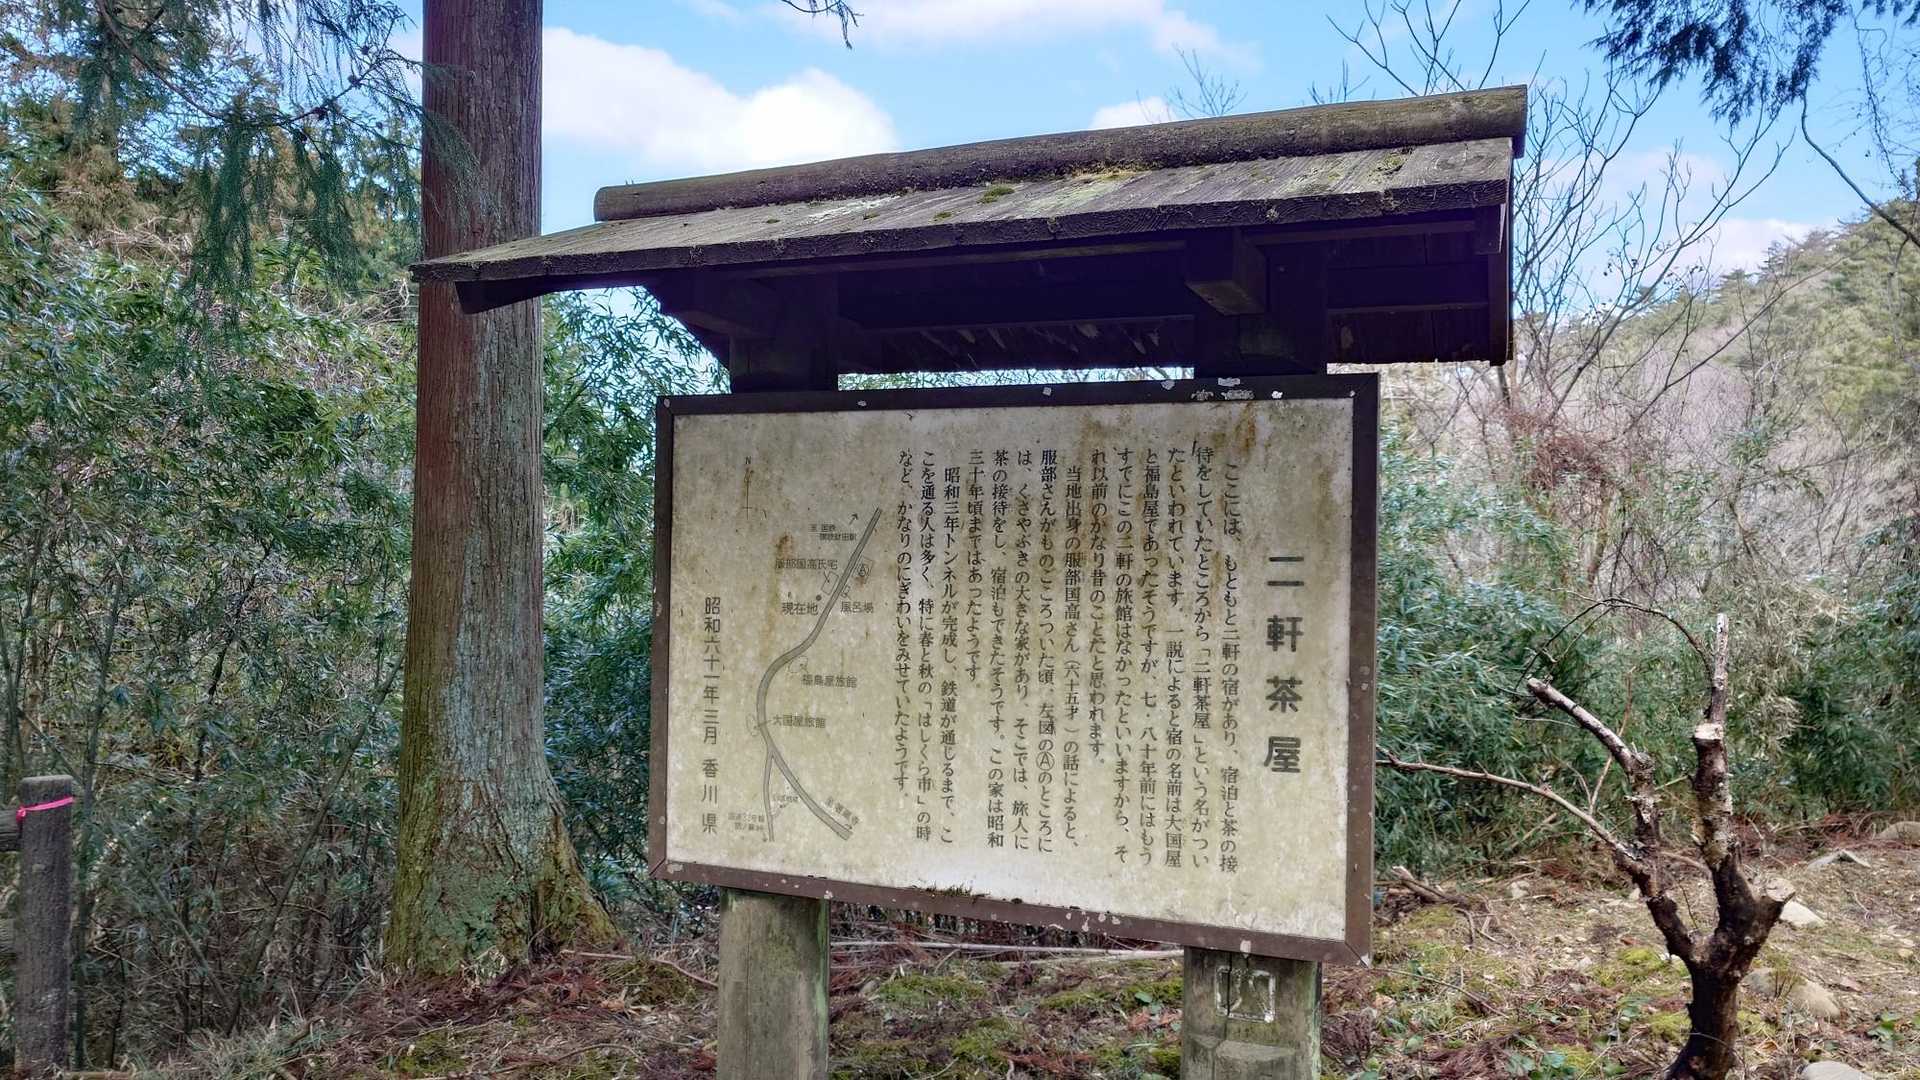 二軒茶屋
ここには、もともと二軒の宿があり、宿泊と茶の接
待をしていたところから「二軒茶屋」という名がつい
たといわれています。一説によると宿の名前は大国屋
と福島屋であったそうですが、七・八十年前にはもう
すでにこの二軒の旅館はなかったといいますから、そ
れ以前のかなり昔のことだと思われます。
当地出身の服部国高さん(六十五才)の話によると、
服部さんがものごころついた頃、左図のⒶのところに
は、くさやぶきの大きな家があり、そこでは、旅人に
茶の接待をし、宿泊もできたそうです。この家は昭和
三十年頃まではあったようです。
昭和三年トンネルが完成し、鉄道が通じるまで、こ
こを通る人は多く、特に春と秋の「はしくら市」の時
など、かなりのにぎわいをみせていたようです。
N
至 国鉄
讃岐財田駅
服部国高氏宅
Ⓐ
現在地
風呂場
福島屋旅館
大国屋旅館
至 箸蔵寺
昭和六十一年三月 香川県